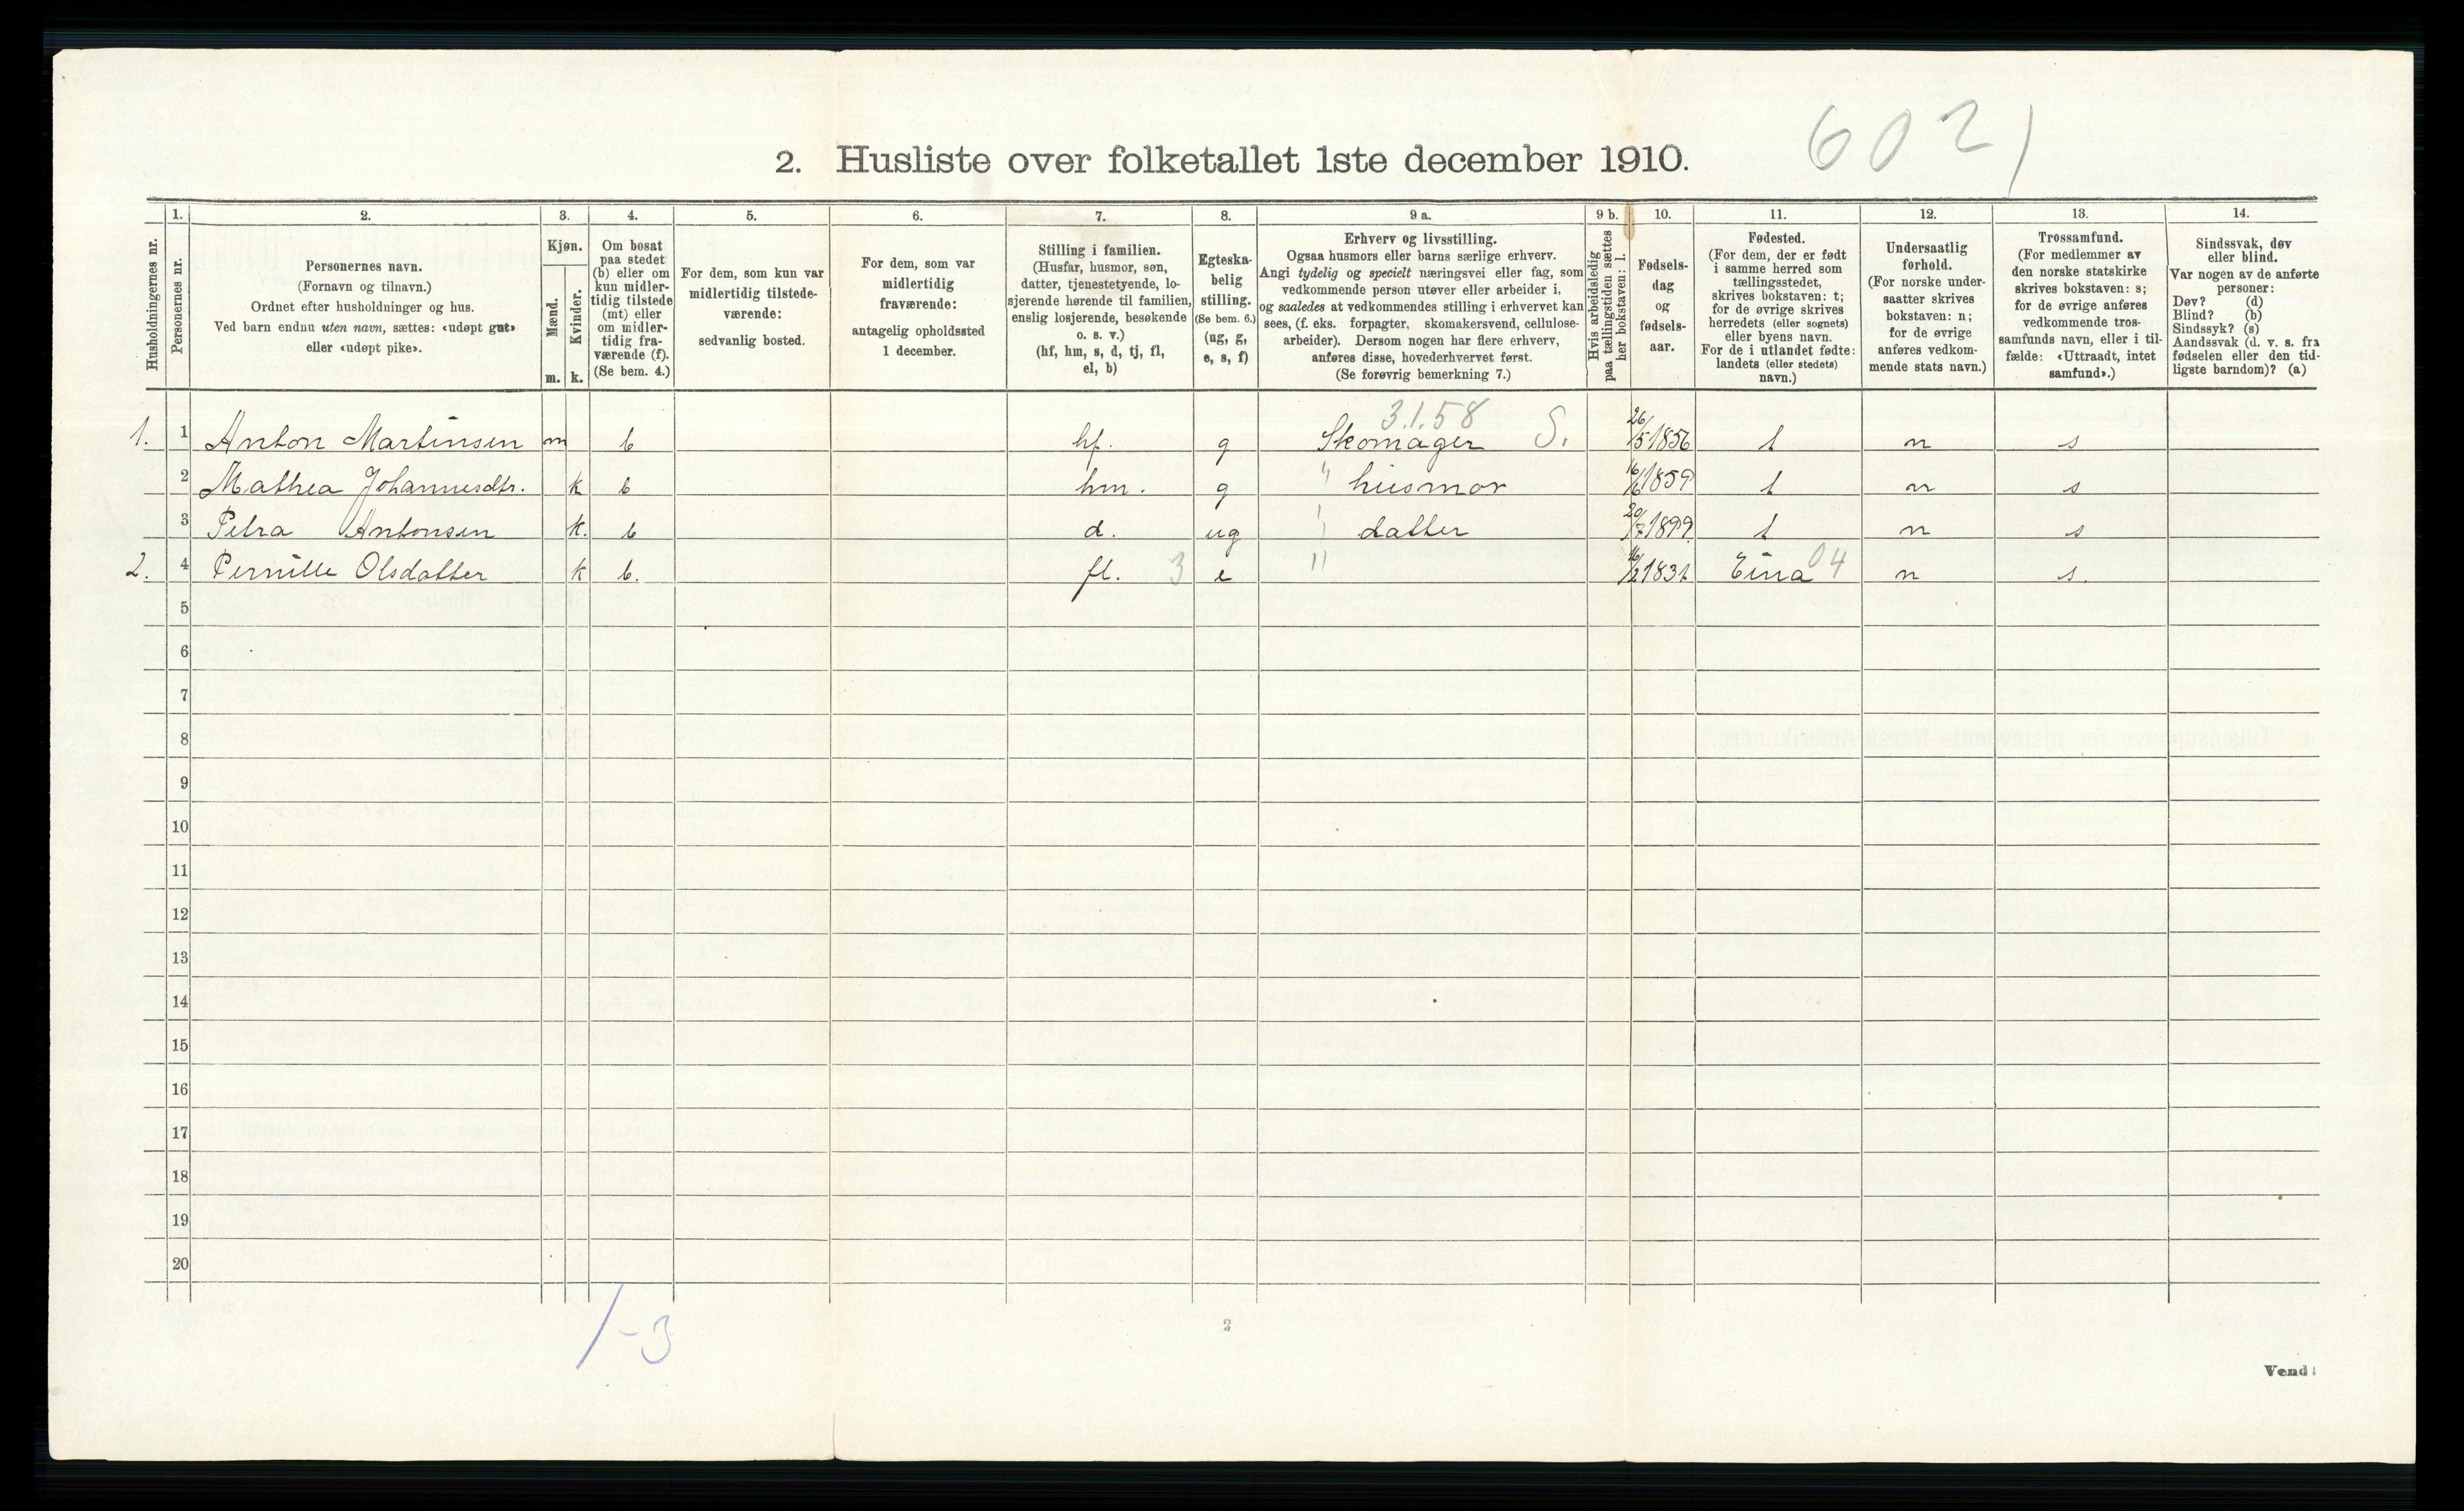 6021
2. Husliste over folketallet 1ste december 1910.
Husholdningernes nr.
1.
Personernes nr.
2.
Personernes navn.
(Fornavn og tilnavn.)
Ordnet efter husholdninger og hus.
Ved barn endnu uten navn, sættes: «udøpt gut»
eller «udøpt pike».
3.
Kjøn.
Mænd.
Kvinder.
m. k.
4.
Om bosat
paa stedet
(b) eller om
kun midler-
tidig tilstede
(mt) eller
om midler-
tidig fra-
værende (f).
(Se bem. 4.)
5.
For dem, som kun var
midlertidig tilstede-
værende:
sedvanlig bosted.
6.
For dem, som var
midlertidig
fraværende:
antagelig opholdssted
1 december.
7.
Stilling i familien.
(Husfar, husmor, søn,
datter, tjenestetyende, lo-
sjerende hørende til familien,
enslig losjerende, besøkende
o. s. v.)
(hf, hm, s, d, tj, fl,
el, b)
8.
Egteska-
belig
stilling.
(Se bem. 6.)
(ug, g,
e, s, f)
9 a.
Erhverv og livsstilling.
Ogsaa husmors eller barns særlige erhverv.
Angi tydelig og specielt næringsvei eller fag, som
vedkommende person utøver eller arbeider i,
og saaledes at vedkommendes stilling i erhvervet kan
sees, (f. eks. forpagter, skomakersvend, cellulose-
arbeider). Dersom nogen har flere erhverv,
anføres disse, hovederhvervet først.
(Se forøvrig bemerkning 7.)
9 b.
Hvis arbeidsledig
paa tællingstiden sættes
her bokstaven: l.
10.
Fødsels-
dag
og
fødsels-
aar.
11.
Fødested.
(For dem, der er født
i samme herred som
tællingsstedet,
skrives bokstaven: t;
for de øvrige skrives
herredets (eller sognets)
eller byens navn.
For de i utlandet fødte:
landets (eller stedets)
navn.)
12.
Undersaatlig
forhold.
(For norske under-
saatter skrives
bokstaven: n;
for de øvrige
anføres vedkom-
mende stats navn.)
13.
Trossamfund.
(For medlemmer av
den norske statskirke
skrives bokstaven: s;
for de øvrige anføres
vedkommende tros-
samfunds navn, eller i til-
fælde: «Uttraadt, intet
samfund».)
14.
Sindssvak, døv
eller blind.
Var nogen av de anførte
personer:
Døv? (d)
Blind? (b)
Sindssyk? (s)
Aandssvak (d. v. s. fra
fødselen eller den tid-
ligste barndom)? (a)
3.1.58
1. 1 Anton Martinsen m b hf. g Skomager S. 26/5 1856 t n s
2 Mathea Johannesdtr. k b hm. g " husmor 16/6 1859 t n s
3 Petra Antonsen k. b d. ug " datter 20/7 1899 t n s
2. 4 Pernille Olsdatter k b. fl. 3 e " 16/2 1831 Eina 04 n s.
5
6
7
8
9
10
11
12
13
14
15
16
17
18
19
20
1-3
2
Vend!